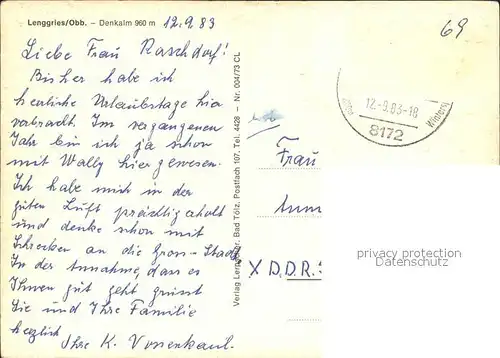 Lenggries/Obb. – Denkalm 960 m 12.9.83
69
Liebe Frau Raschdorf!
Bisher habe ich
herrliche Urlaubstage hier
verbracht. Im vergangenen
Jahr bin ich ja schon
mit Wally hier gewesen.
Ich habe mich in der
guten Luft prächtig erholt
und denke schon mit
Schrecken an die Gross-Stadt
In der Annahme, dass es
Ihnen gut geht grüsst
Sie und Ihre Familie
herzlich
Ihre K. Vonenkaul.
Tel. 4428 – Nr. 004/73 CL
Bad Tölz, Postfach 107,
Verlag
12.-9.83-18
8172
Winters
Frau
X D.D.R.
privacy protection
Datenschutz